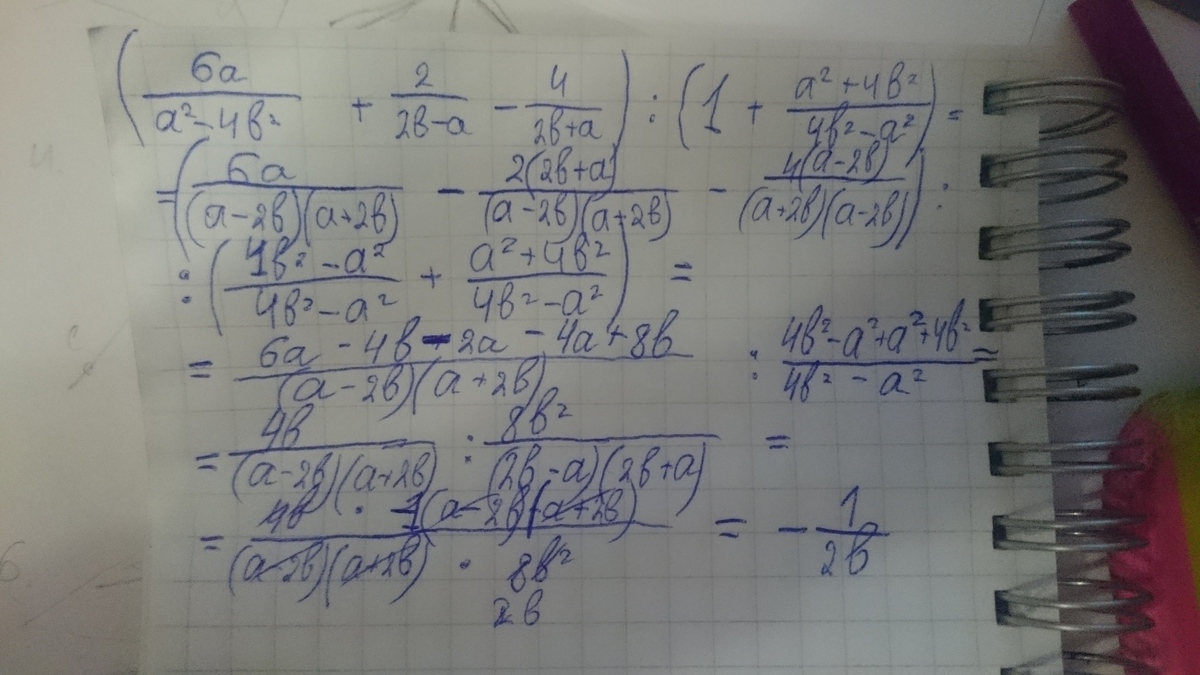 (6a/(a² - 4b²) + 2/(2b - a) - 4/(2b + a)) : (1 + (a² + 4b²)/(4b² - a²)) =
= (6a/((a - 2b)(a + 2b)) - 2(2b + a)/((a - 2b)(a + 2b)) - 4(a - 2b)/((a + 2b)(a - 2b))) :
: ((4b² - a²)/(4b² - a²) + (a² + 4b²)/(4b² - a²)) =
= (6a - 4b - 2a - 4a + 8b)/((a - 2b)(a + 2b)) : (4b² - a² + a² + 4b²)/(4b² - a²) =
= 4b/((a - 2b)(a + 2b)) : 8b²/((2b - a)(2b + a)) =
= (4b · -(a - 2b)(a + 2b))/((a - 2b)(a + 2b) · 8b²) = - 1/(2b)
2b